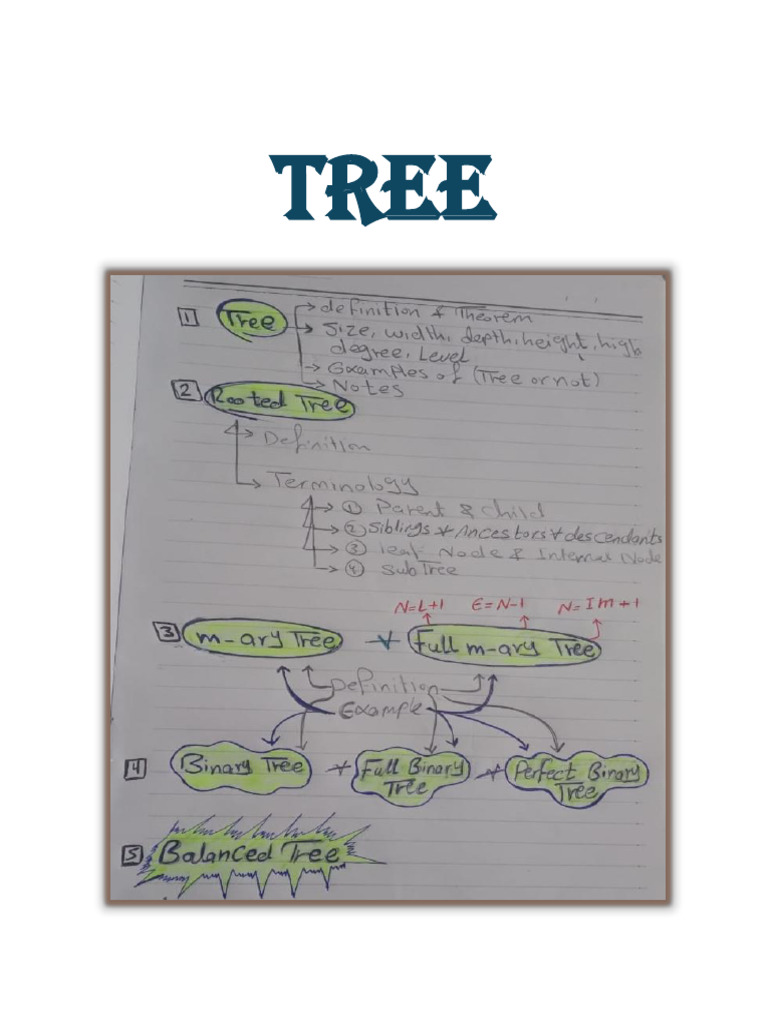 TREE
1 Tree → definition & Theorem
→ Size, width, depth, height, high
degree, Level
→ Examples of (Tree or not)
→ Notes
2 Rooted Tree
→ Definition
→ Terminology
→ ① Parent & child
→ ② Siblings & Ancestors & descendants
→ ③ leaf Node & Internal Node
→ ④ SubTree
N=L+I E=N-1 N=Im+1
3 m-ary Tree & Full m-ary Tree
Definition
Example
4 Binary Tree & Full Binary Tree & Perfect Binary Tree
5 Balanced Tree